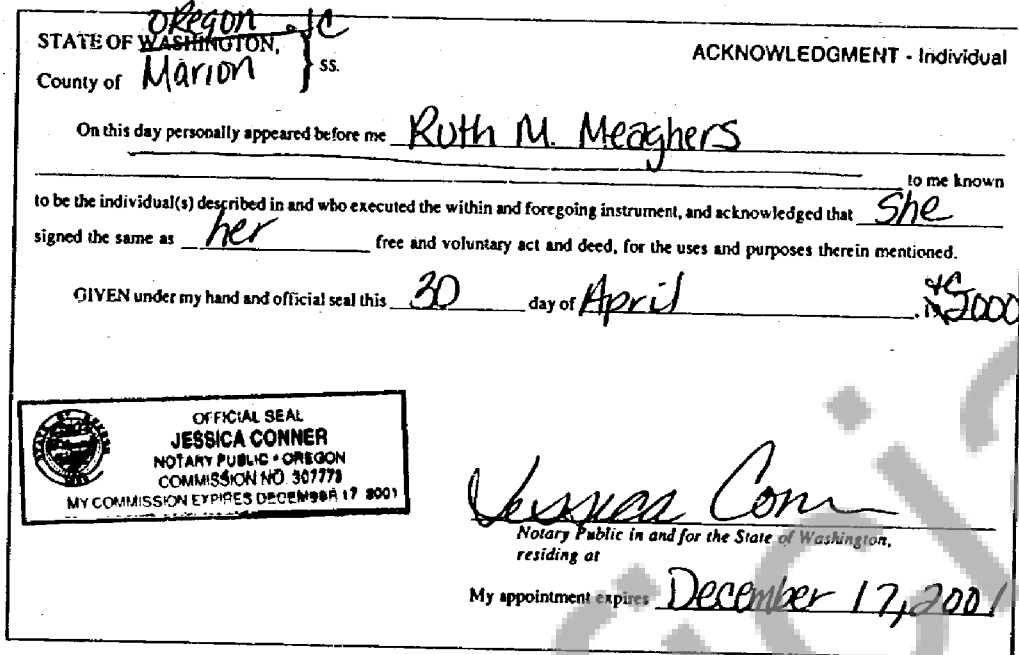 Oregon JC
STATE OF WASHINGTON,
ACKNOWLEDGMENT - Individual
County of Marion } ss.
On this day personally appeared before me Ruth M. Meaghers
to me known
to be the individual(s) described in and who executed the within and foregoing instrument, and acknowledged that She
signed the same as her free and voluntary act and deed, for the uses and purposes therein mentioned.
JC
GIVEN under my hand and official seal this 30 day of April, 2000
OFFICIAL SEAL
JESSICA CONNER
NOTARY PUBLIC • OREGON
COMMISSION NO. 307773
MY COMMISSION EXPIRES DECEMBER 17 2001
Jessica Conn
Notary Public in and for the State of Washington,
residing at
My appointment expires December 17, 2001